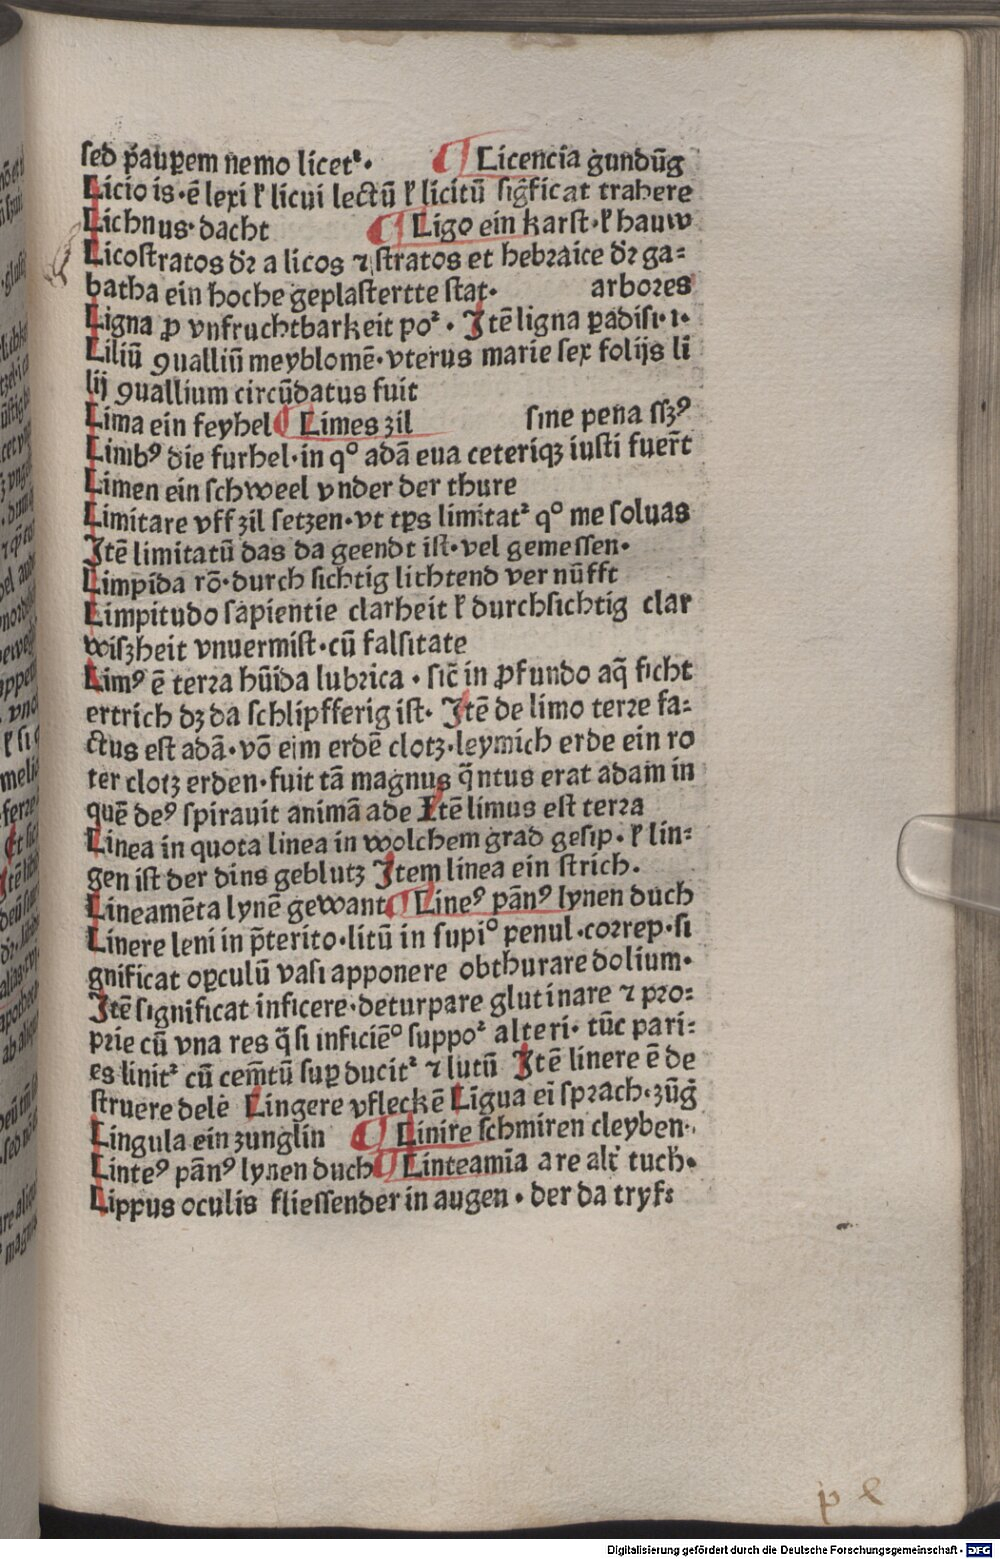 sed p̄auꝑem nemo licetᷣ. ¶ Licencia gundūg
Licio is·ē lexi ł licui lectū ł licitū siḡficat trahere
Lichnus·dacht ¶ Ligo ein karst·ł hauw
Licostratos dꝛ a licos ⁊ stratos et hebꝛaice dꝛ ga⸗
batha ein hoche geplastertte stat· arboꝛes
Ligna ꝓ vnfruchtbarkeit poᷣ. Itē ligna ꝑadisi·i·
Liliū ꝯualliū meyblomē·vterus marie sex folijs li
lij ꝯuallium circūdatus fuit
Lima ein feyhel ¶ Limes zil sine pena ſſꝫꝰ
Limbꝰ die furhel·in qͦ adā eua ceteriqꝫ iusti fuer̄t
Limen ein schweel vnder der thure
Limitare vff zil setzen·vt tꝑs limitatᷣ qͦ me soluas
Itē limitatū das da geendt ist·vel gemessen·
Limpida rō·durch sichtig lichtend ver nūfft
Limpitudo sapientie clarheit ł durchsichtig clar
wiszheit vnuermist·cū falsitate
Limꝰ ē terra hūida lubꝛica · sic̄ in ꝓfundo aq̄ sicht
ertrich dꝫ da schlipfferig ist· Itē de limo terre fa⸗
ctus est adā·vō eim erdē clotz·leymich erde ein ro
ter clotz erden·fuit tā magnus q̄ntus erat adam in
quē deꝰ spirauit animā ade Itē limus est terra
Linea in quota linea in wolchem grad gesip·ł lin⸗
gen ist der dins geblutz Item linea ein strich.
Lineamēta lynē gewant ¶ Lineꝰ pānꝰ lynen duch
Linere leni in p̄terito·litū in supiͦ penul·coꝛrep·si
gnificat oꝑculū vasi apponere obthurare dolium·
Itē significat inficere·deturpare glutinare ⁊ pꝛo⸗
pꝛie cū vna res q̄si inficiēͦ suppoᷣ alteri· tūc pari⸗
es linitᷣ cū cem̄tū suꝑ ducitᷣ ⁊ lutū Itē linere ē de
struere delē Lingere vfleckē Ligua ei̅ spꝛach·zūg̅
Lingula ein zunglin ¶ Linire schmiren cleyben·
Linteꝰ pānꝰ lynen duch ¶ Linteamīa are alt̄ tuch·
Lippus oculis fliessender in augen · der da tryf⸗
p l
Digitalisierung gefördert durch die Deutsche Forschungsgemeinschaft · DFG